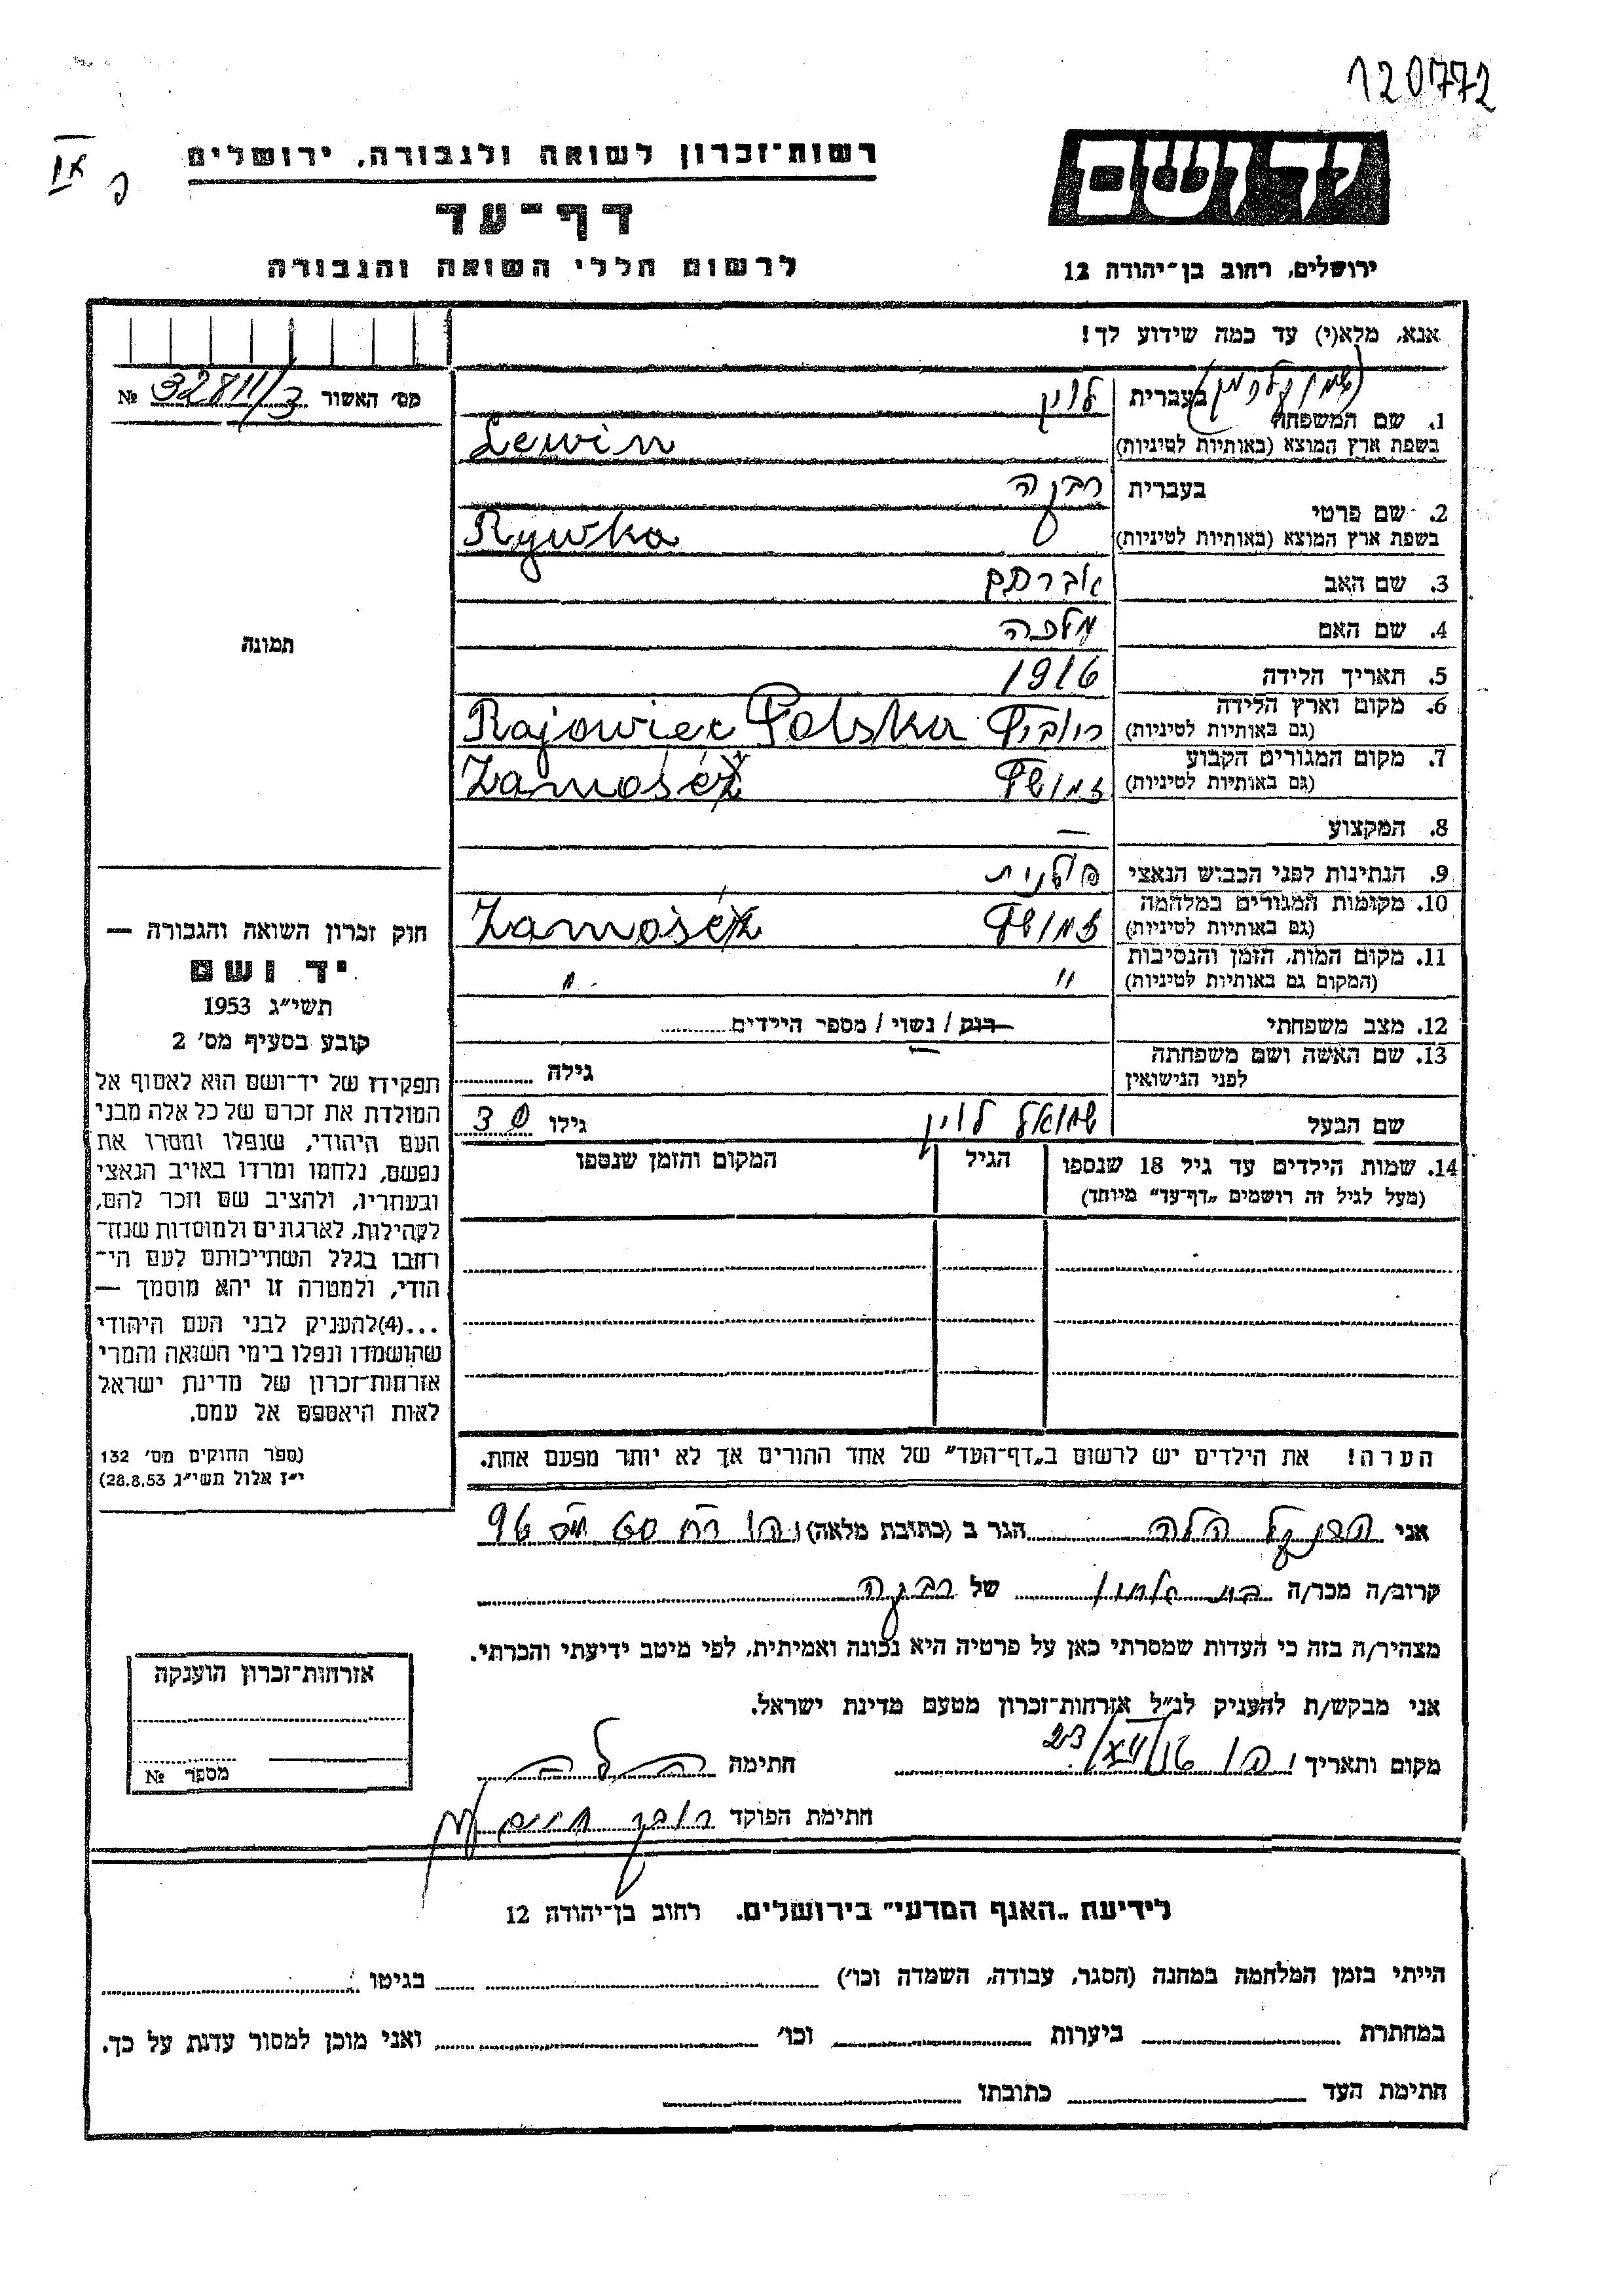 120772
רשות־זכרון לשואה ולגבורה, ירושלים
דף־עד
לרשום חללי השואה והגבורה
יד ושם
ירושלים, רחוב בן־יהודה 12
אנא, מלא(י) עד כמה שידוע לך!
מס׳ האשור 32811/3 №
1. שם המשפחה בעברית לוין
בשפת ארץ המוצא (באותיות לטיניות) Lewin
2. שם פרטי בעברית רבקה
בשפת ארץ המוצא (באותיות לטיניות) Rywka
3. שם האב אברהם
4. שם האם מלכה
5. תאריך הלידה 1916
6. מקום וארץ הלידה
(גם באותיות לטיניות) Rajowiec Polska
7. מקום המגורים הקבוע
(גם באותיות לטיניות) זמושץ Zamość
8. המקצוע —
9. הנתינות לפני הכבוש הנאצי פולנית
10. מקומות המגורים במלחמה
(גם באותיות לטיניות) זמושץ Zamość
11. מקום המות, הזמן והנסיבות
(המקום גם באותיות לטיניות) " "
12. מצב משפחתי רווק / נשוי / מספר הילדים
13. שם האשה ושם משפחתה
לפני הנישואין גילה
שם הבעל שמואל לוין גילו 30
14. שמות הילדים עד גיל 18 שנספו הגיל המקום והזמן שנספו
(מעל לגיל זה רושמים „דף־עד״ מיוחד)
תמונה
חוק זכרון השואה והגבורה —
יד ושם
תשי״ג 1953
קובע בסעיף מס׳ 2
תפקידו של יד־ושם הוא לאסוף אל
המולדת את זכרם של כל אלה מבני
העם היהודי, שנפלו ומסרו את
נפשם, נלחמו ומרדו באויב הנאצי
ובעוזריו, ולהציב שם וזכר להם,
לקהילות, לארגונים ולמוסדות שנח־
רחבו בגלל השתייכותם לעם הי־
הודי, ולמטרה זו יהא מוסמך —
...(4) להעניק לבני העם היהודי
שהושמדו ונפלו בימי השואה והמרי
אזרחות־זכרון של מדינת ישראל
לאות היאספם אל עמם.
(ספר החוקים מס׳ 132
י״ז אלול תשי״ג 28.8.53)
הערה! את הילדים יש לרשום ב„דף־העד״ של אחד ההורים אך לא יותר מפעם אחת.
אני הלה הגר ב (כתובת מלאה) 96
קרוב/ה מכר/ה של רבקה
מצהיר/ה בזה כי העדות שמסרתי כאן על פרטיה היא נכונה ואמיתית, לפי מיטב ידיעתי והכרתי.
אני מבקש/ת להעניק לנ״ל אזרחות־זכרון מטעם מדינת ישראל.
מקום ותאריך חתימה
חתימת הפוקד
אזרחות־זכרון הוענקה
מספר №
לידיעת „האגף המדעי״ בירושלים. רחוב בן־יהודה 12
הייתי בזמן המלחמה במחנה (הסגר, עבודה, השמדה וכו׳) בגיטו
במחתרת ביערות וכו׳ ואני מוכן למסור עדות על כך.
חתימת העד כתובתו